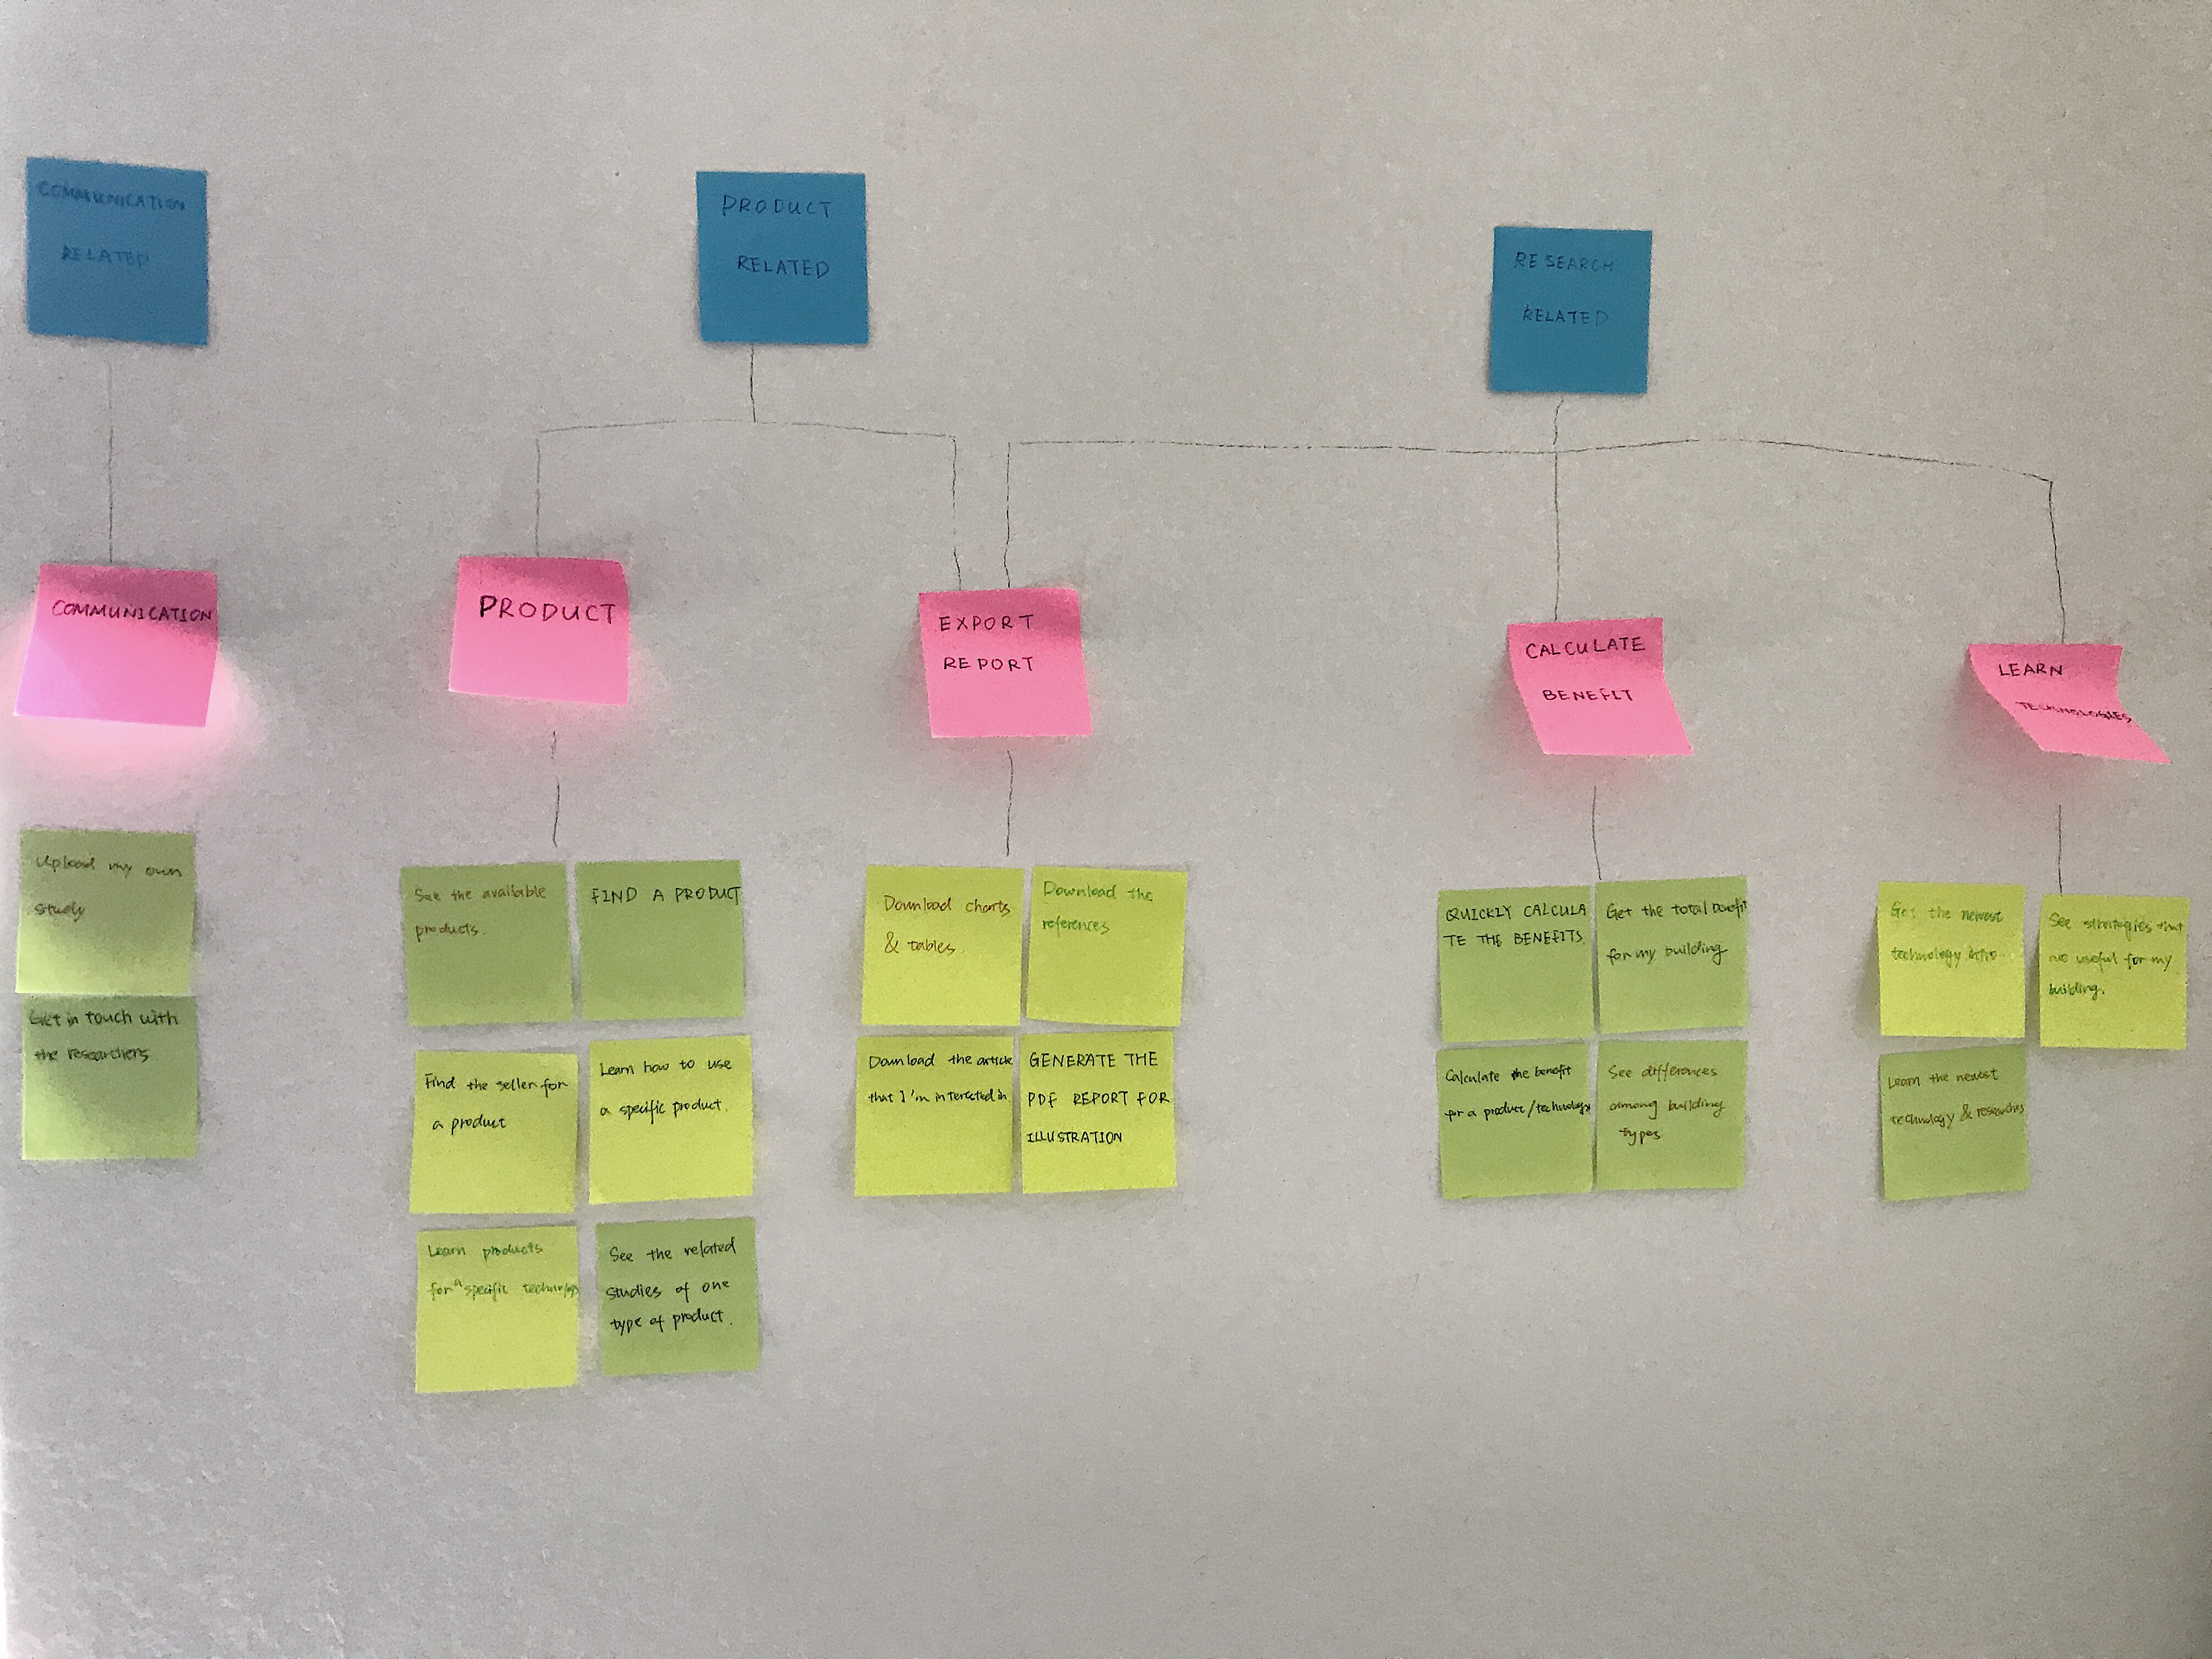 COMMUNICATION
RELATED
PRODUCT
RELATED
RESEARCH
RELATED
COMMUNICATION
PRODUCT
EXPORT
REPORT
CALCULATE
BENEFIT
LEARN
TECHNOLOGIES
Upload my own
study
Get in touch with
the researchers
See the available
products.
FIND A PRODUCT
Find the seller for
a product
Learn how to use
a specific product.
Learn products
for a specific technology
See the related
studies of one
type of product.
Download charts
& tables.
Download the
references
Download the article
that I'm interested in.
GENERATE THE
PDF REPORT FOR
ILLUSTRATION
QUICKLY CALCULA
TE THE BENEFITS.
Get the total benefit
for my building
Calculate the benefit
for a product/technology
See differences
among building
types
Get the newest
technology
See strategies that
are useful for my
building.
Learn the newest
technology & researches